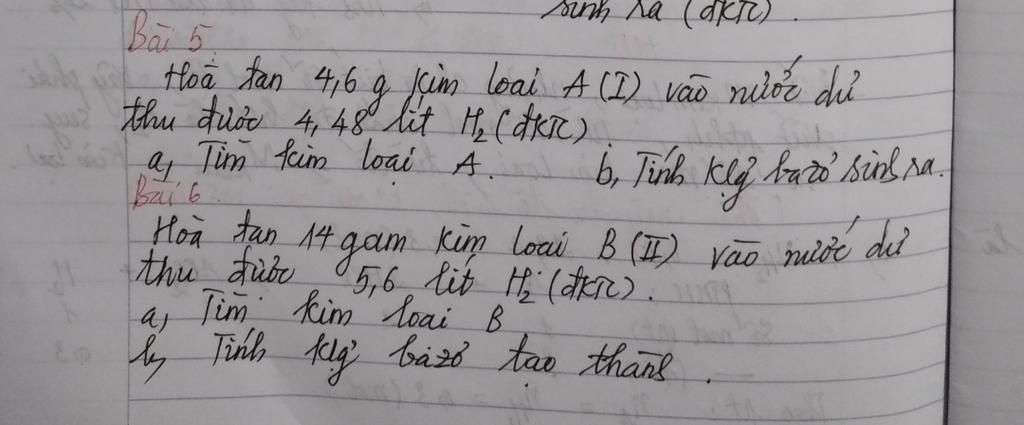 sinh ra (đktc).
Bài 5
Hoà tan 4,6 g kim loại A (I) vào nước dư
thu được 4,48 lit H2 (đktc)
a, Tìm kim loại A. b, Tính klg bazơ sinh ra.
Bài 6
Hoà tan 14 gam kim loại B (II) vào nước dư
thu được 5,6 lít H2 (đktc).
a, Tìm kim loại B
b, Tính klg bazơ tạo thành.